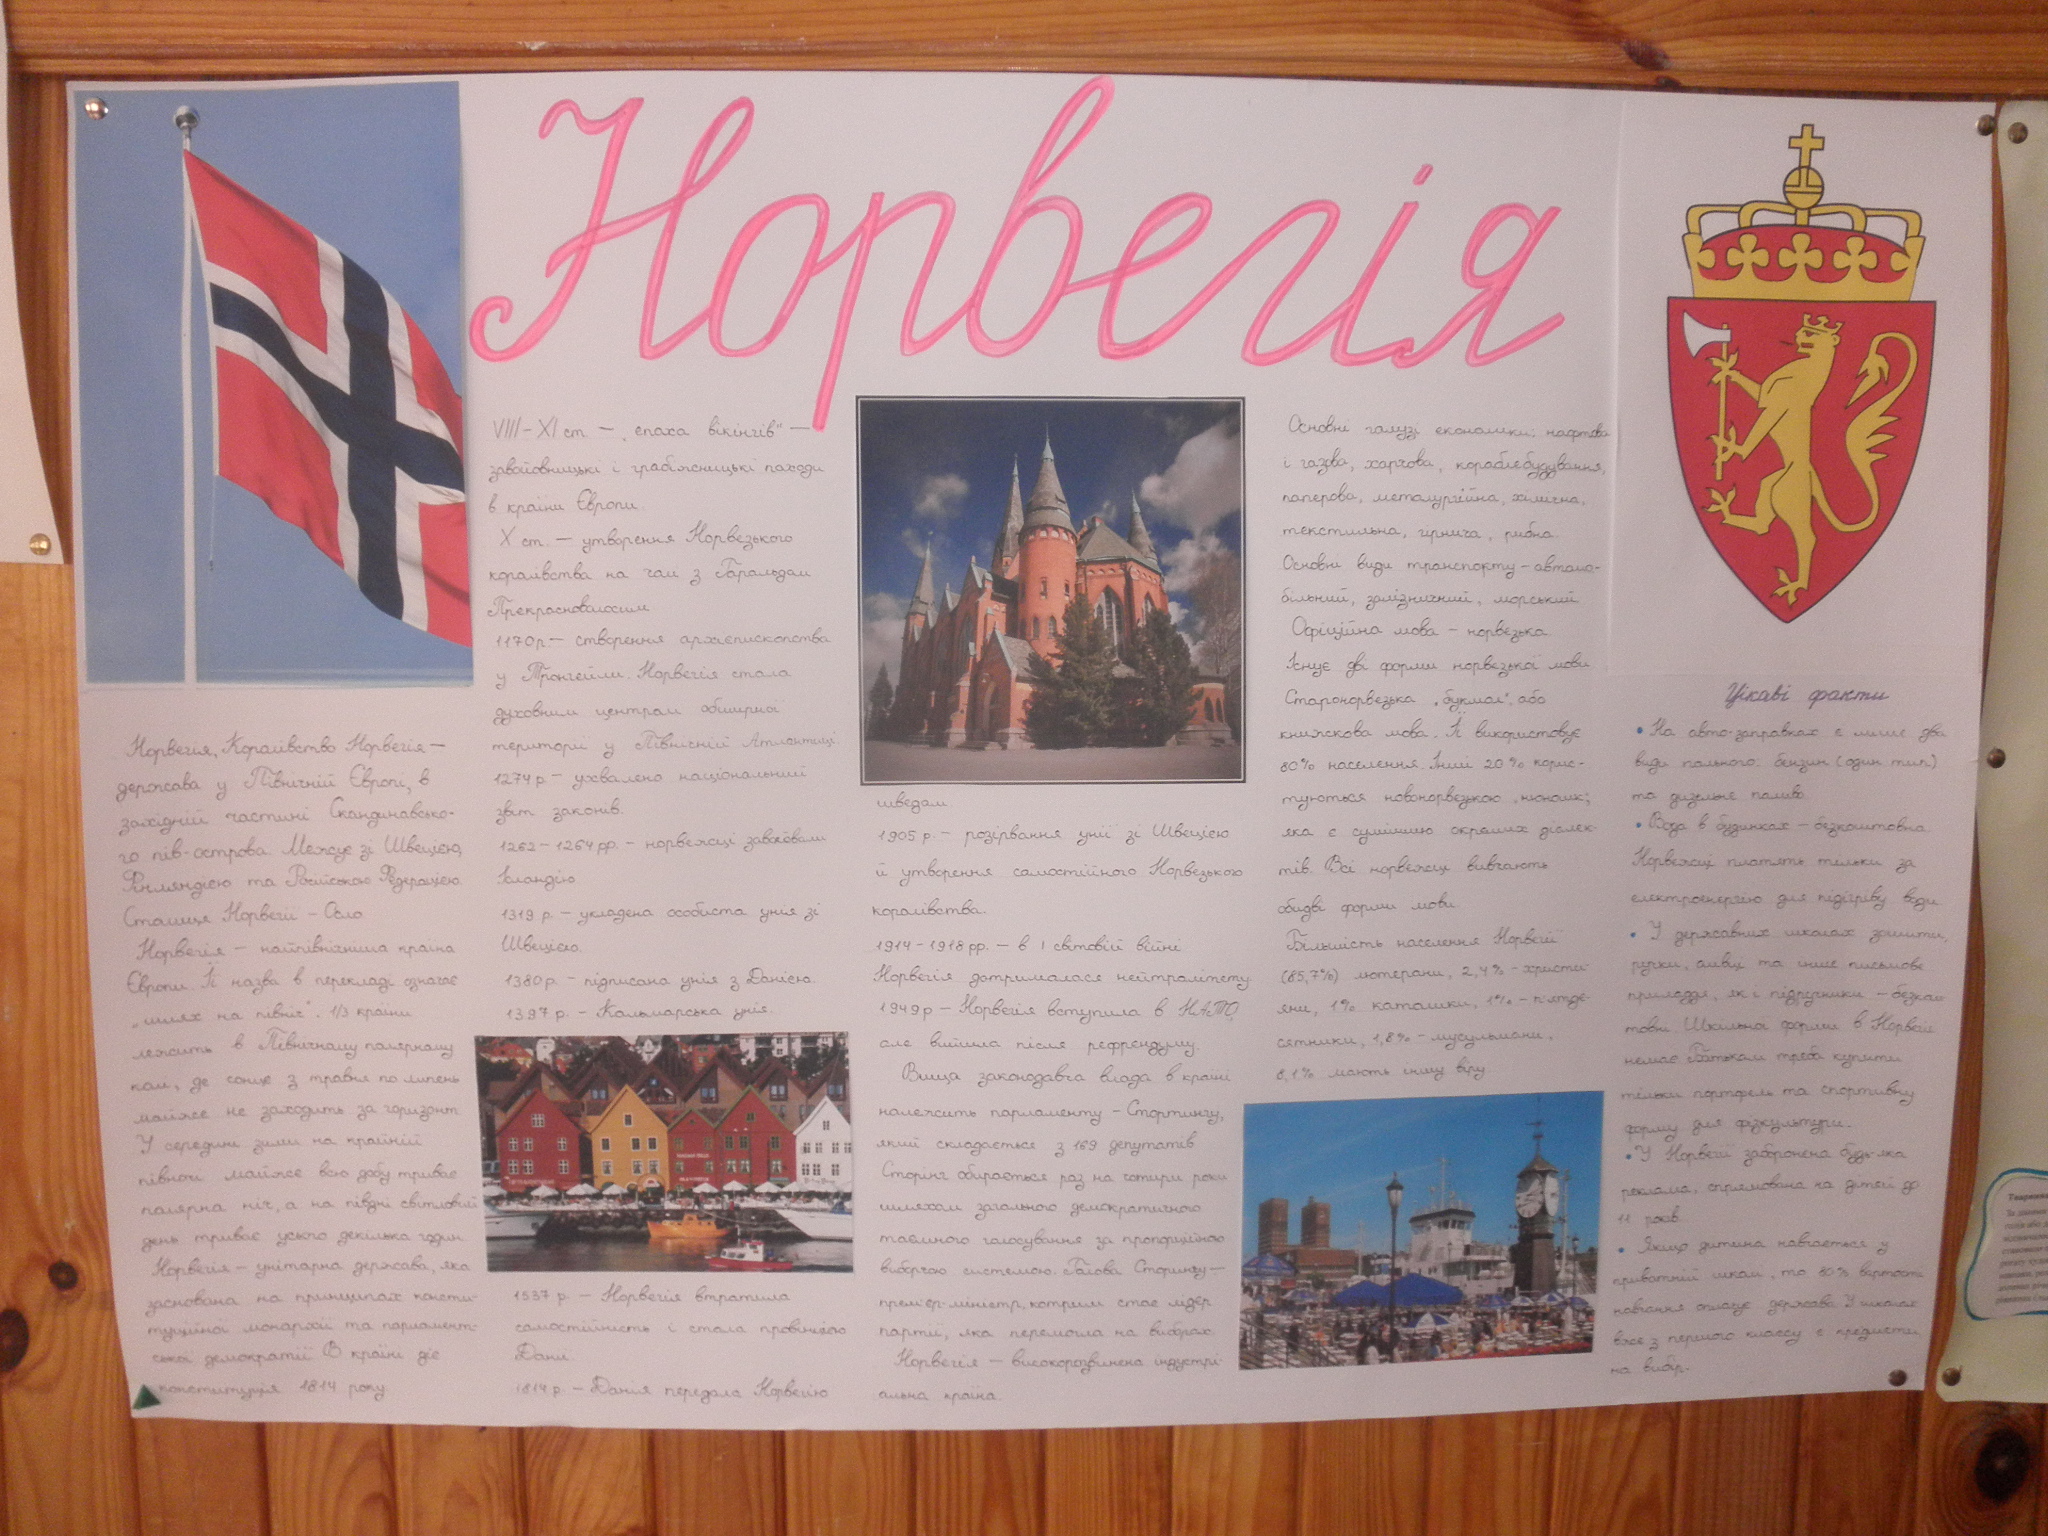 Норвегія
Норвегія, Королівство Норвегія –
держава у Північній Європі, в
західній частині Скандинавсько-
го пів-острова. Межує зі Швецією,
Фінляндією та Російською Федерацією.
Столиця Норвегії – Осло
Норвегія – найпівнічніша країна
Європи. Її назва в перекладі означає
„шлях на північ". 1/3 країни
лежить в Північному полярному
колі, де сонце з травня по липень
майже не заходить за горизонт
У середині зими на крайній
півночі майже всю добу триває
полярна ніч, а на півдні світловий
день триває усього декілька годин
Норвегія – унітарна держава, яка
заснована на принципах консти-
туційної монархії та парламент-
ської демократії В країні діє
конституція 1814 року
VIII – XI ст. – „епоха вікінгів" –
завойовницькі і грабіжницькі походи
в країни Європи.
X ст. – утворення Норвезького
королівства на чолі з Гаральдом
Прекрасноволосим
1170 р. – створення архієпископства
у Тронгеймі. Норвегія стала
духовним центром обширної
території у Північній Атлантиці
1274 р – ухвалено національний
звіт законів.
1262 – 1264 рр. – норвежці завоювали
Ісландію
1319 р. – укладена особиста унія зі
Швецією.
1380 р. – підписана унія з Данією.
1397 р. – Кальмарська унія.
1537 р. – Норвегія втратила
самостійність і стала провінцією
Данії
1814 р. – Данія передала Норвегію
шведам
1905 р – розірвання унії зі Швецією
й утворення самостійного Норвезького
королівства.
1914 – 1918 рр. – в І світовій війні
Норвегія дотрималася нейтралітету
1949 р – Норвегія вступила в НАТО,
але вийшла після референдуму.
Вища законодавча влада в країні
належить парламенту – Стортингу,
який складається з 169 депутатів
Сторінг обирається раз на чотири роки
шляхом загального демократичного
таємного голосування за пропорційною
виборчою системою. Голова Сторингу –
прем'єр-міністр, котрим стає лідер
партії, яка перемогла на виборах.
Норвегія – високорозвинена індустрі-
альна країна.
Основні галузі економіки: нафтова
і газова, харчова, кораблебудування,
паперова, металургійна, хімічна,
текстильна, гірнича, рибна.
Основні види транспорту – автомо-
більний, залізничний, морський
Офіційна мова – норвезька.
Існує дві форми норвезької мови
Старонорвезька „букмол", або
книжкова мова. Її використовує
80% населення. Інші 20% корис-
туються новонорвезькою нюношк;
яка є сумішшю окремих діалек-
тів. Всі норвежці вивчають
обидві форми мови.
Більшість населення Норвегії
(85,7%) лютерани, 2,4% – христи-
яни, 1% католики, 1% – п'ятде-
сятники, 1,8% – мусульмани,
8,1% мають іншу віру
Цікаві факти
• На авто-заправках є лише два
види пального: бензин (один тип)
та дизельне паливо
• Вода в будинках – безкоштовна
Норвежці платять тільки за
електроенергію для підігріву води
• У державних школах зошити,
ручки, олівці та інше письмове
приладдя, як і підручники – безкош
товні. Шкільної форми в Норвегії
немає Батькам треба купити
тільки портфель та спортивну
форму для фізкультури.
• У Норвегії заборонена будь-яка
реклама, спрямована на дітей до
11 років
• Якщо дитина навчається у
приватній школі, то 80% вартості
навчання оплачує держава У школах
вже з першого классу є предмети
на вибір.